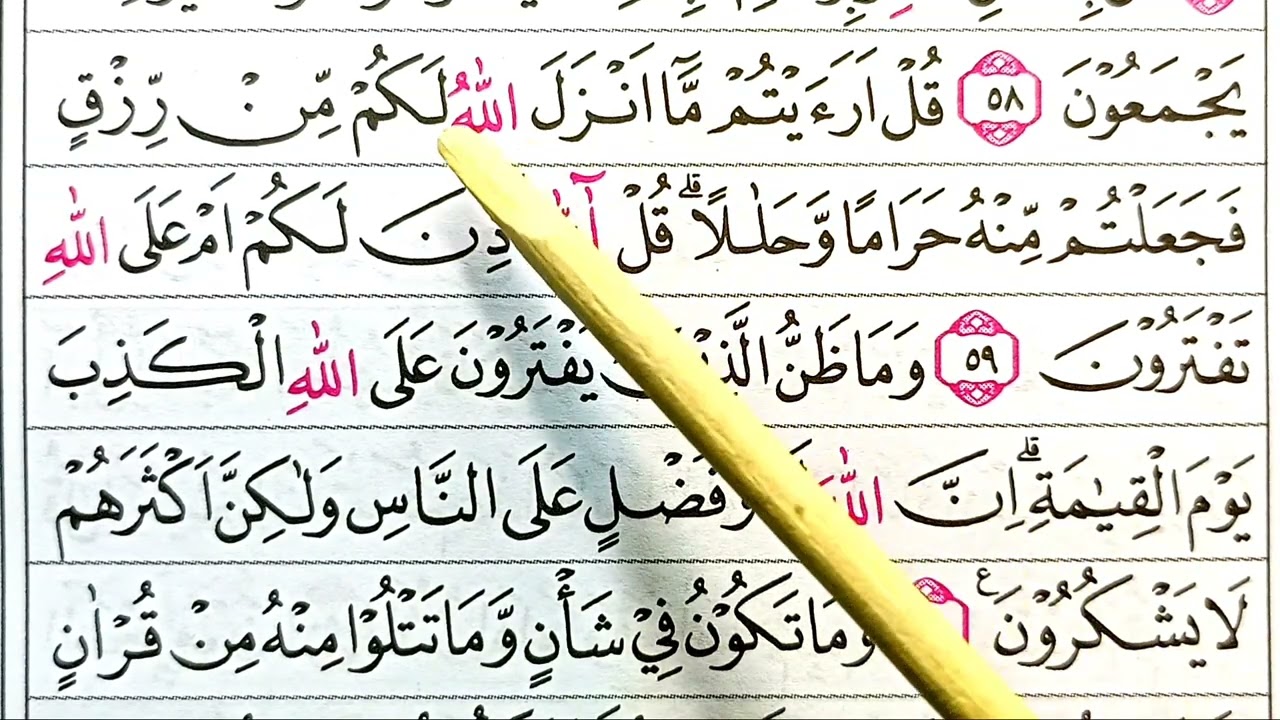 يَجْمَعُوْنَ ٥٨ قُلْ اَرَءَيْتُمْ مَّآ اَنْزَلَ اللّٰهُ لَكُمْ مِّنْ رِّزْقٍ
فَجَعَلْتُمْ مِّنْهُ حَرَامًا وَّحَلٰلًا ۗ قُلْ لَكُمْ اَمْ عَلَى اللّٰهِ
تَفْتَرُوْنَ ٥٩ وَمَا ظَنُّ يَفْتَرُوْنَ عَلَى اللّٰهِ الْكَذِبَ
يَوْمَ الْقِيٰمَةِ ۗ اِنَّ اللّٰهَ فَضْلٍ عَلَى النَّاسِ وَلٰكِنَّ اَكْثَرَهُمْ
لَا يَشْكُرُوْنَ ࣖ وَمَا تَكُوْنُ فِيْ شَأْنٍ وَّمَا تَتْلُوْا مِنْهُ مِنْ قُرْاٰنٍ